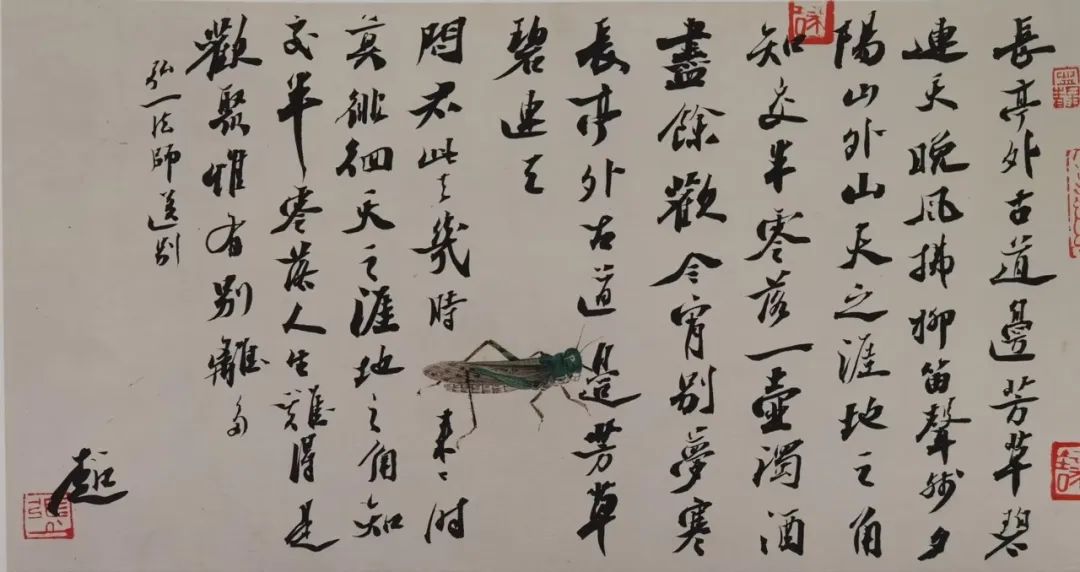 長亭外古道邊芳草碧
連天晚風拂柳笛聲殘夕
陽山外山天之涯地之角
知交半零落一壺濁酒
盡餘歡今宵別夢寒
長亭外古道邊芳草
碧連天
問君此去幾時來〻時
莫徘徊天之涯地之角知
交半零落人生難得是
歡聚惟有別離多
弘一法師送别